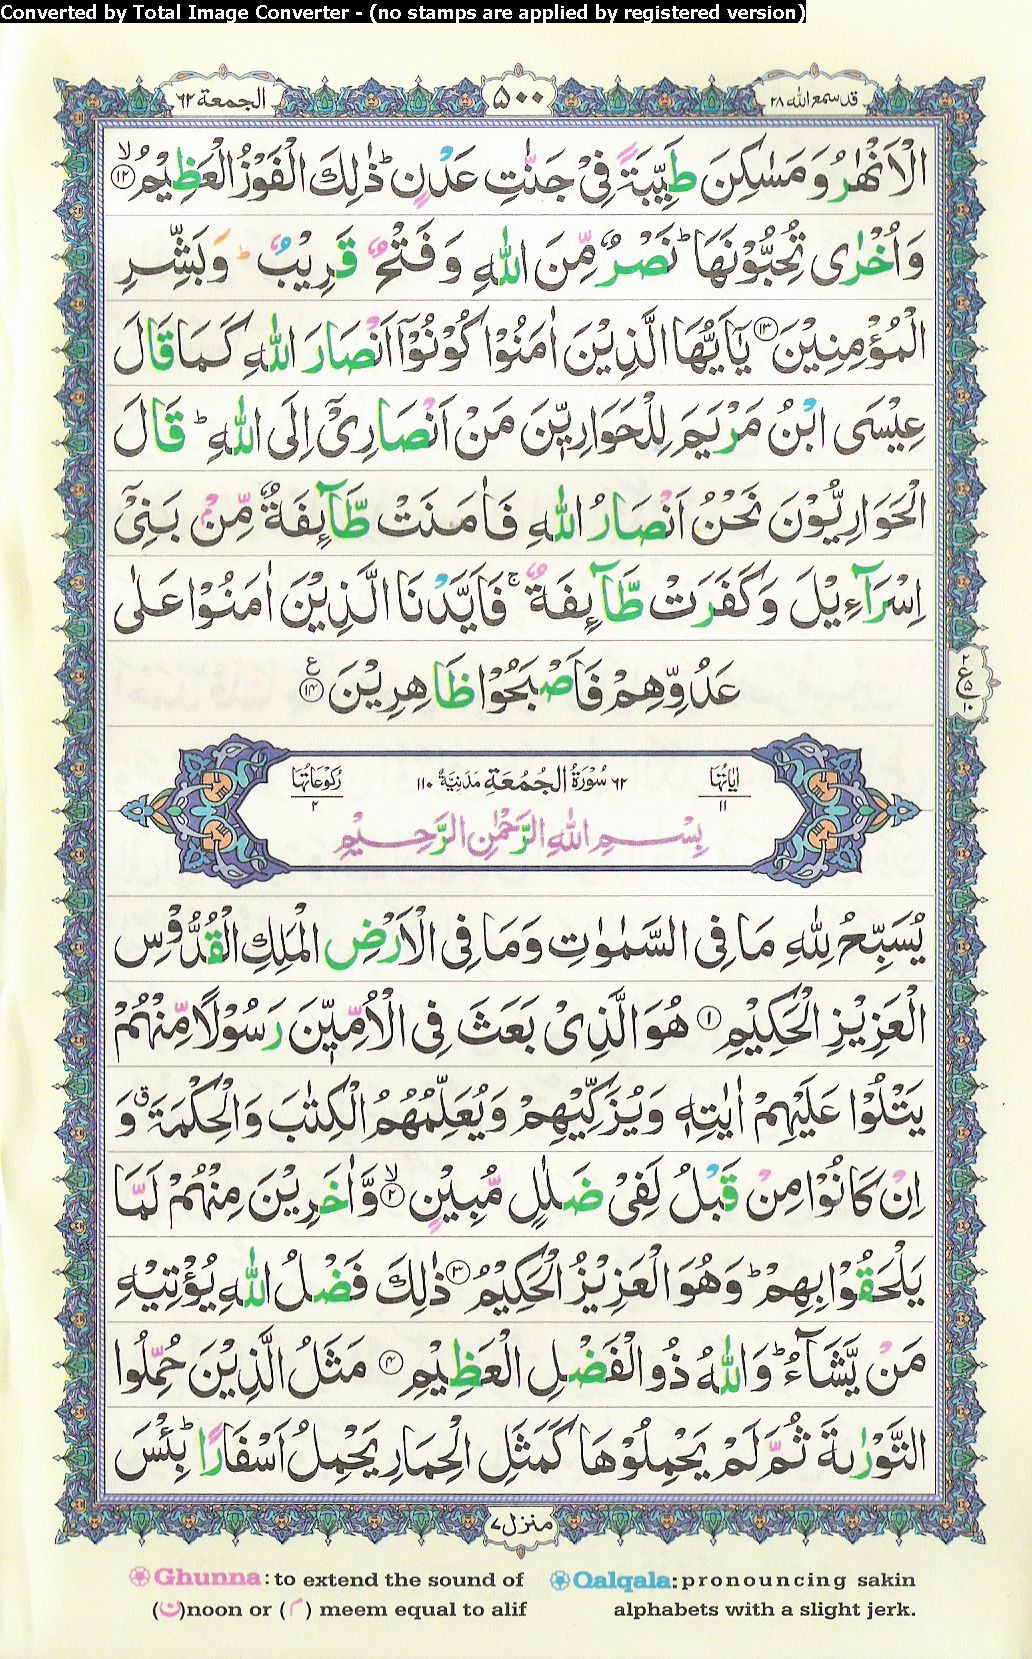 Converted by Total Image Converter - (no stamps are applied by registered version)
الجمعة ٦٢
٥٠٠
قد سمع الله ٢٨
الْاَنْهٰرُ وَمَسٰكِنَ طَيِّبَةً فِيْ جَنّٰتِ عَدْنٍ ؕ ذٰلِكَ الْفَوْزُ الْعَظِيْمُ ۙ ١٢
وَاُخْرٰى تُحِبُّوْنَهَا ؕ نَصْرٌ مِّنَ اللّٰهِ وَفَتْحٌ قَرِيْبٌ ؕ وَبَشِّرِ
الْمُؤْمِنِيْنَ ١٣ يٰٓاَيُّهَا الَّذِيْنَ اٰمَنُوْا كُوْنُوْٓا اَنْصَارَ اللّٰهِ كَمَا قَالَ
عِيْسَى ابْنُ مَرْيَمَ لِلْحَوَارِيّٖنَ مَنْ اَنْصَارِيْٓ اِلَى اللّٰهِ ؕ قَالَ
الْحَوَارِيُّوْنَ نَحْنُ اَنْصَارُ اللّٰهِ فَاٰمَنَتْ طَّآئِفَةٌ مِّنْۢ بَنِيْٓ
اِسْرَآءِيْلَ وَكَفَرَتْ طَّآئِفَةٌ ۚ فَاَيَّدْنَا الَّذِيْنَ اٰمَنُوْا عَلٰى
عَدُوِّهِمْ فَاَصْبَحُوْا ظَاهِرِيْنَ ١٤ ع
٢ ع ٥ ١٠
اٰيَاتُهَا ١١ ٦٢ سُوْرَةُ الْجُمُعَةِ مَدَنِيَّةٌ ١١٠ رُكُوْعَاتُهَا ٢
بِسْمِ اللّٰهِ الرَّحْمٰنِ الرَّحِيْمِ
يُسَبِّحُ لِلّٰهِ مَا فِى السَّمٰوٰتِ وَمَا فِى الْاَرْضِ الْمَلِكِ الْقُدُّوْسِ
الْعَزِيْزِ الْحَكِيْمِ ١ هُوَ الَّذِيْ بَعَثَ فِى الْاُمِّيّٖنَ رَسُوْلًا مِّنْهُمْ
يَتْلُوْا عَلَيْهِمْ اٰيٰتِهٖ وَيُزَكِّيْهِمْ وَيُعَلِّمُهُمُ الْكِتٰبَ وَالْحِكْمَةَ ۗ وَ
اِنْ كَانُوْا مِنْ قَبْلُ لَفِيْ ضَلٰلٍ مُّبِيْنٍ ۙ ٢ وَّاٰخَرِيْنَ مِنْهُمْ لَمَّا
يَلْحَقُوْا بِهِمْ ؕ وَهُوَ الْعَزِيْزُ الْحَكِيْمُ ٣ ذٰلِكَ فَضْلُ اللّٰهِ يُؤْتِيْهِ
مَنْ يَّشَآءُ ؕ وَاللّٰهُ ذُو الْفَضْلِ الْعَظِيْمِ ٤ مَثَلُ الَّذِيْنَ حُمِّلُوا
التَّوْرٰىةَ ثُمَّ لَمْ يَحْمِلُوْهَا كَمَثَلِ الْحِمَارِ يَحْمِلُ اَسْفَارًا ؕ بِئْسَ
منزل ٧
Ghunna: to extend the sound of (ن)noon or (م) meem equal to alif
Qalqala: pronouncing sakin alphabets with a slight jerk.